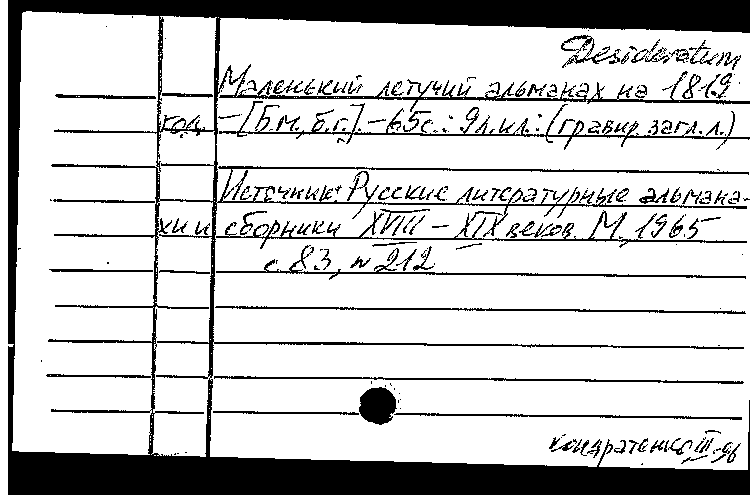 Desideratum
Маленький летучий альманах на 1819
год. – [Б.м., б.г.]. – 65с.: 9л.ил.: (гравир. загл. л.)
Источник: Русские литературные альмана-
хи и сборники XVIII – XIX веков. М., 1965
с. 83, № 212
Кондратенко, III-96